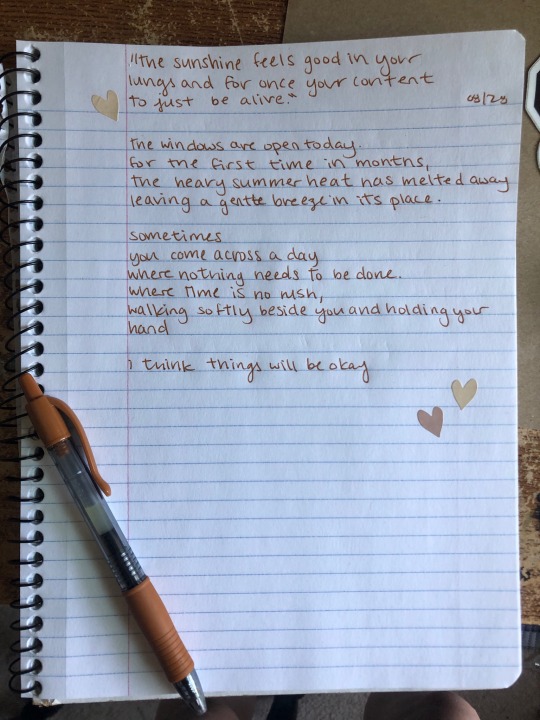 "the sunshine feels good in your
lungs and for once your content
to just be alive."
09/23
The windows are open today.
for the first time in months,
the heavy summer heat has melted away
leaving a gentle breeze in its place.
sometimes
you come across a day
where nothing needs to be done.
where time is no rush,
walking softly beside you and holding your
hand
i think things will be okay